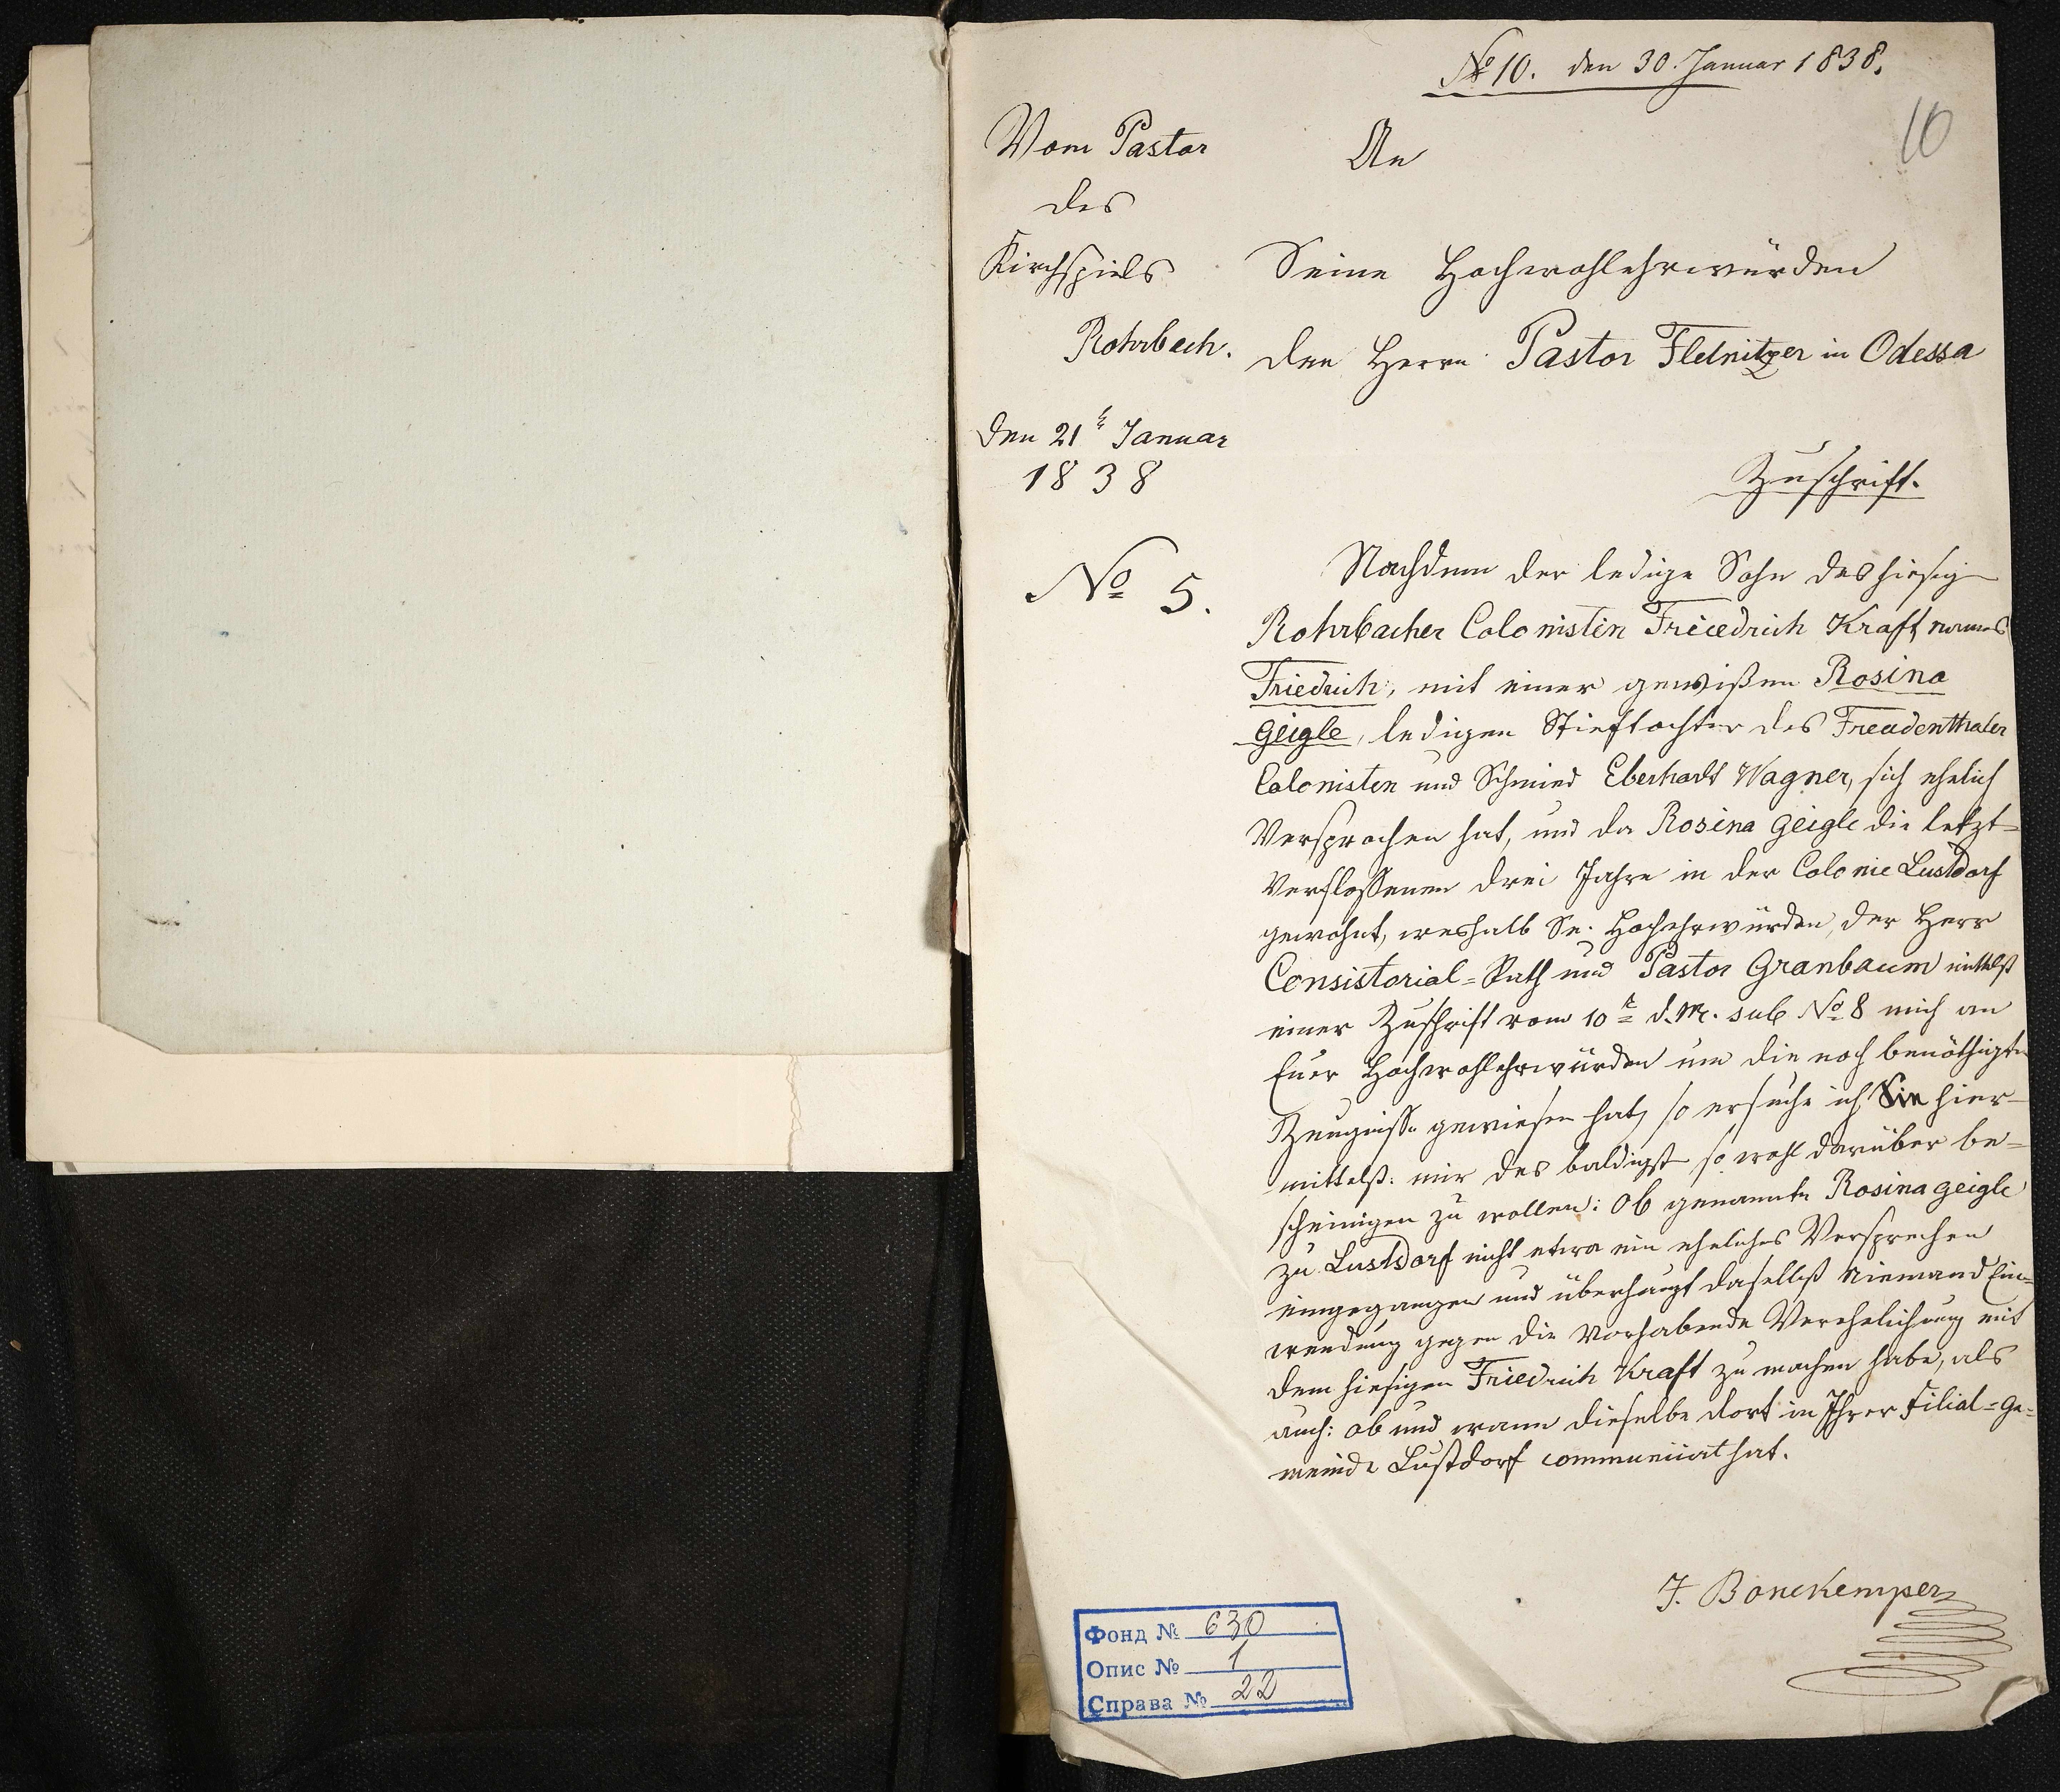 № 10. den 30. Januar 1838.
10
Vom Pastor
des
Kirchspiels
Rohrbach.
den 21t Januar
1838
№ 5.
An
Seine Hochwohlehrwürden
den Herrn Pastor Fletnitzer in Odessa
Zuschrift.
Nachdem der ledige Sohn des hiesig
Rohrbacher Colonisten Friedrich Kraft namens
Friedrich, mit einer gewißen Rosina
Geigle, ledigen Stieftochter des Freudenthaler
Colonisten und Schmied Eberhardt Wagner, sich ehelich
Versprochen hat, und da Rosina Geigle die letzt-
Verflossenen drei Jahre in der Colonie Lustdorf
gewohnt, weshalb Se. Hochehrwürden, der Herr
Consistorial-Rath und Pastor Granbaum mittelst
einer Zuschrift vom 10t d. M. sub № 8 mich an
Euer Hochwohlehrwürden um die noch benöthigte
Zeugnisse gewiesen hat, so ersuche ich Sie hier-
mittelst: mir des baldigst so wohl darüber be-
scheinigen zu wollen: Ob genannte Rosina Geigle
zu Lustdorf nicht etwa ein eheliches Versprechen
eingegangen und überhaupt daselbst Niemand Ein-
wendung gegen die Vorhabende Verehelichung mit
dem hiesigen Friedrich Kraft zu machen habe, als
auch: ob und wann dieselbe dort in Ihrer Filial-Ge-
meinde Lustdorf communiciert hat.
J. Bonekemper
Фонд № 630
Опис № 1
Справа № 22